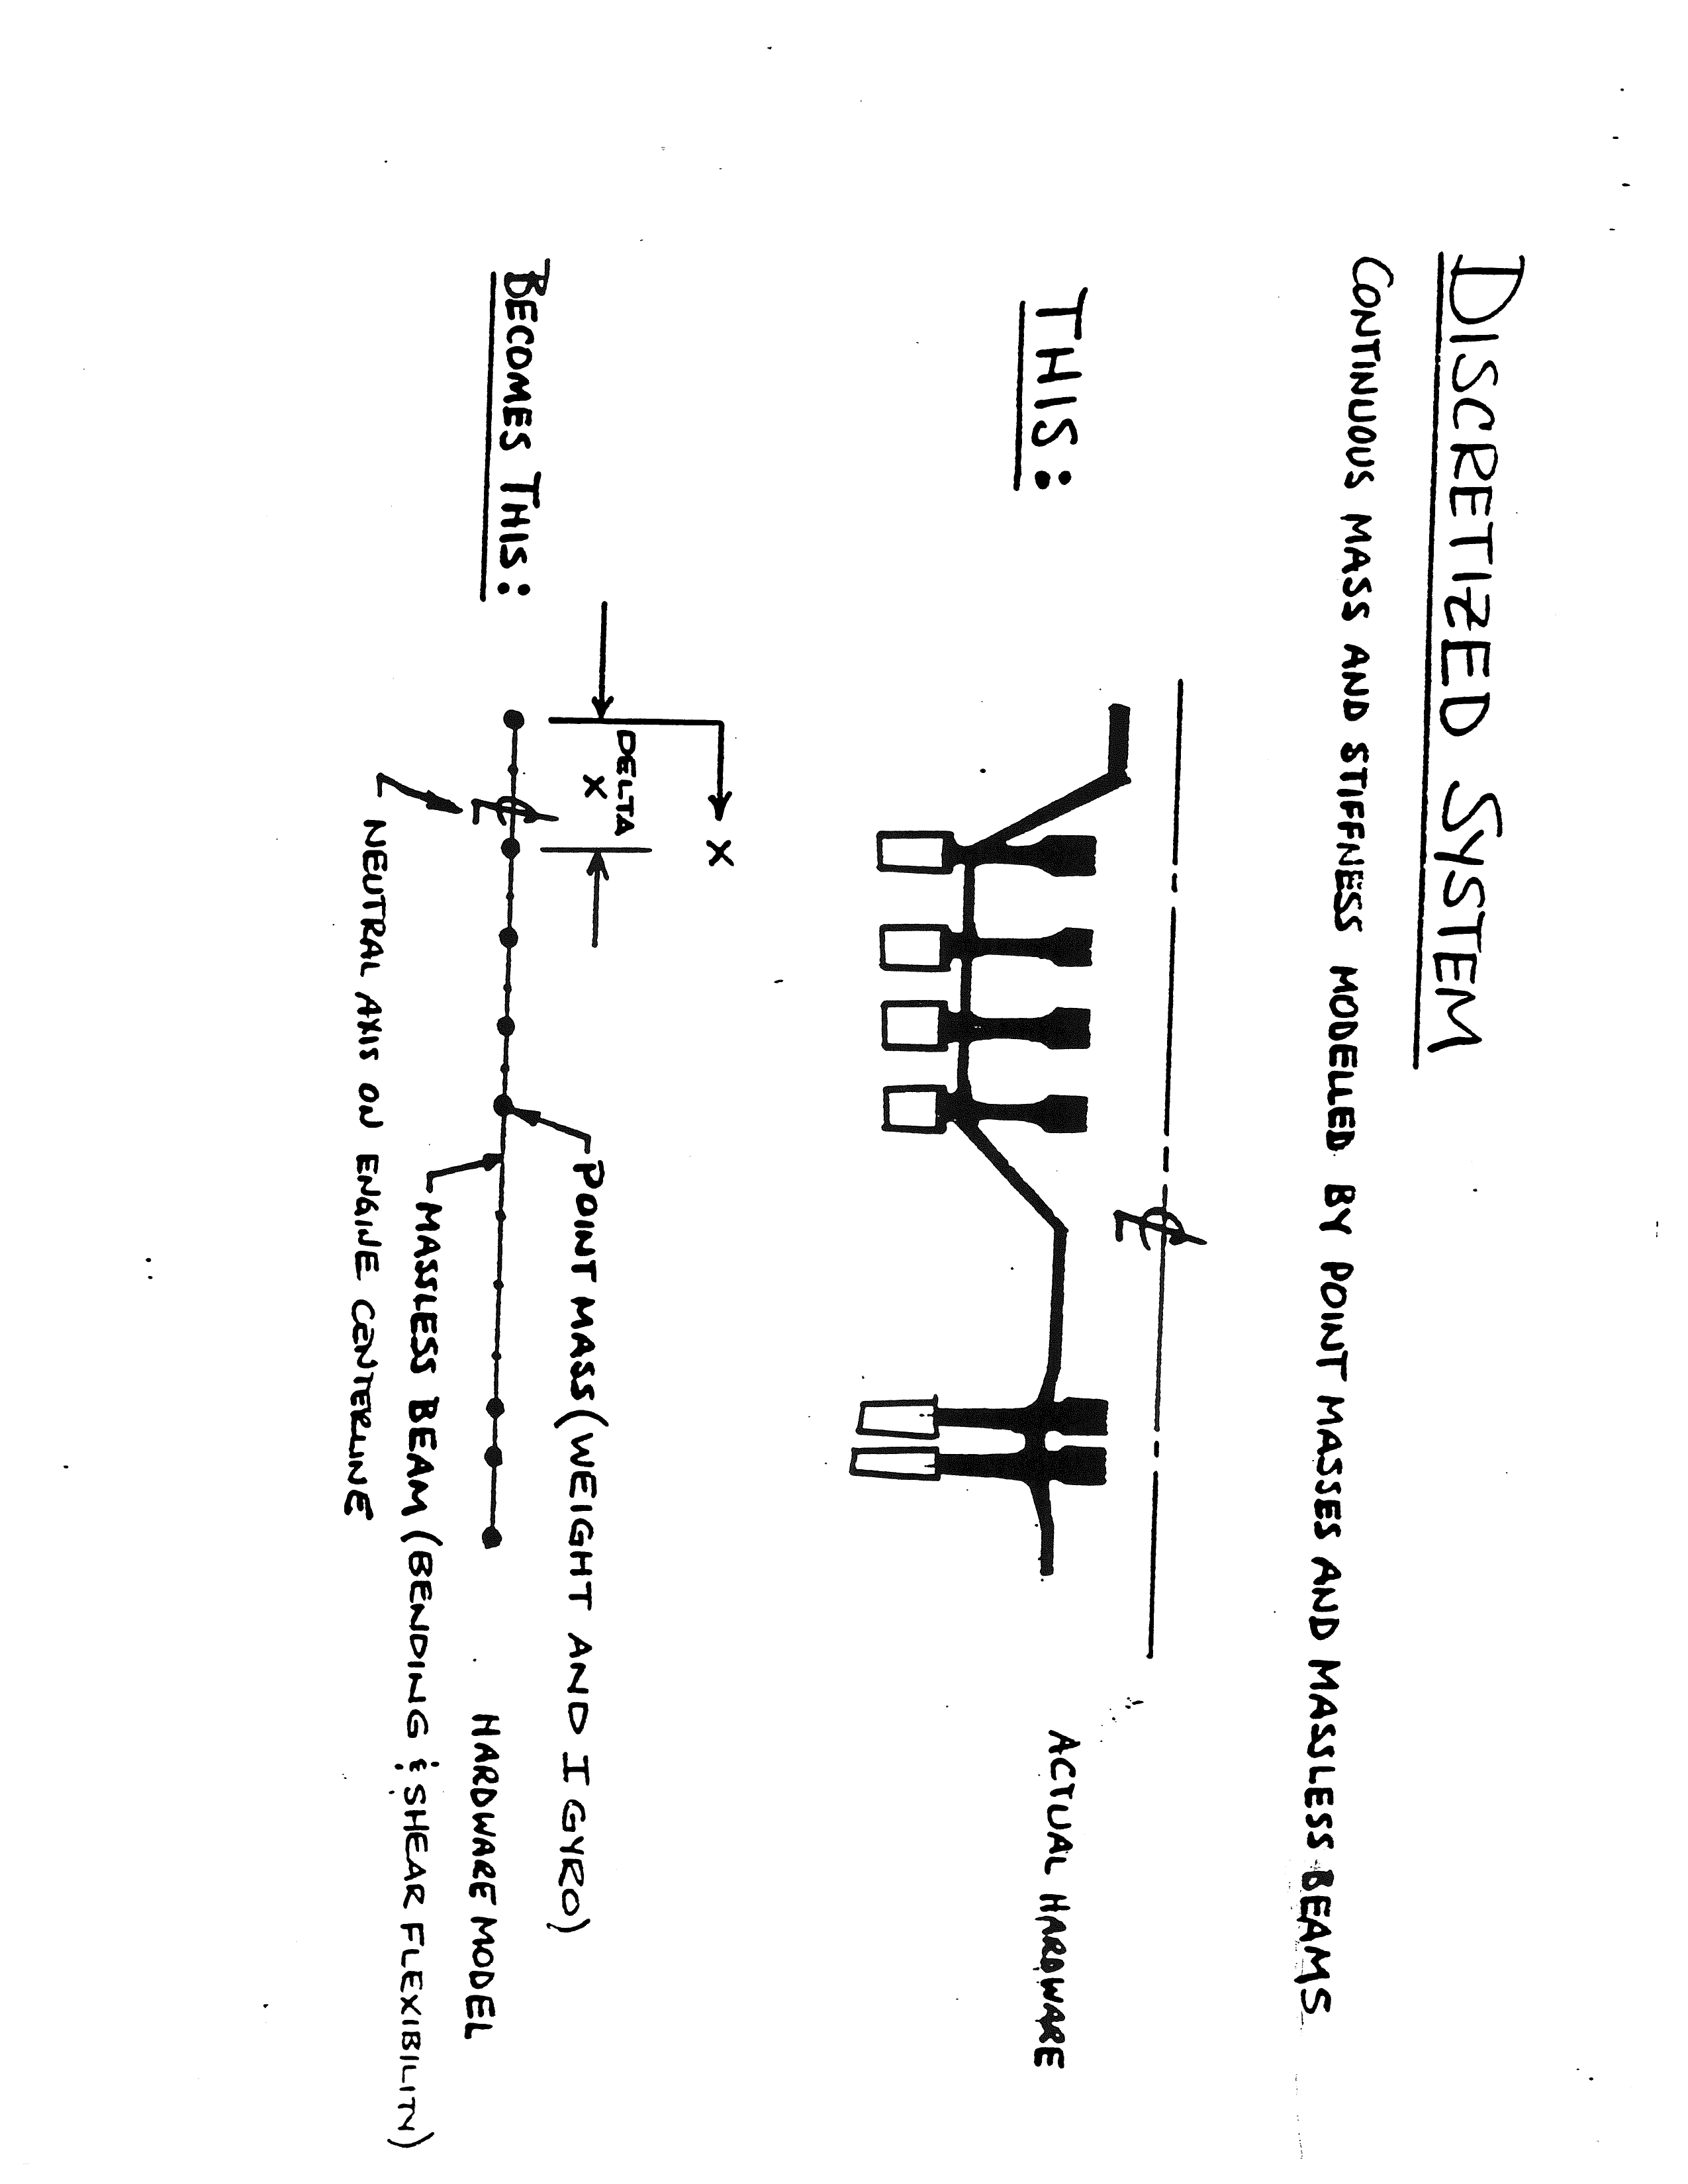 DISCRETIZED SYSTEM
CONTINUOUS MASS AND STIFFNESS MODELLED BY POINT MASSES AND MASSLESS BEAMS
THIS:
℄
ACTUAL HARDWARE
X
DELTA
X
BECOMES THIS:
℄
POINT MASS (WEIGHT AND I GYRO)
HARDWARE MODEL
MASSLESS BEAM (BENDING & SHEAR FLEXIBILITY)
NEUTRAL AXIS ON ENGINE CENTERLINE